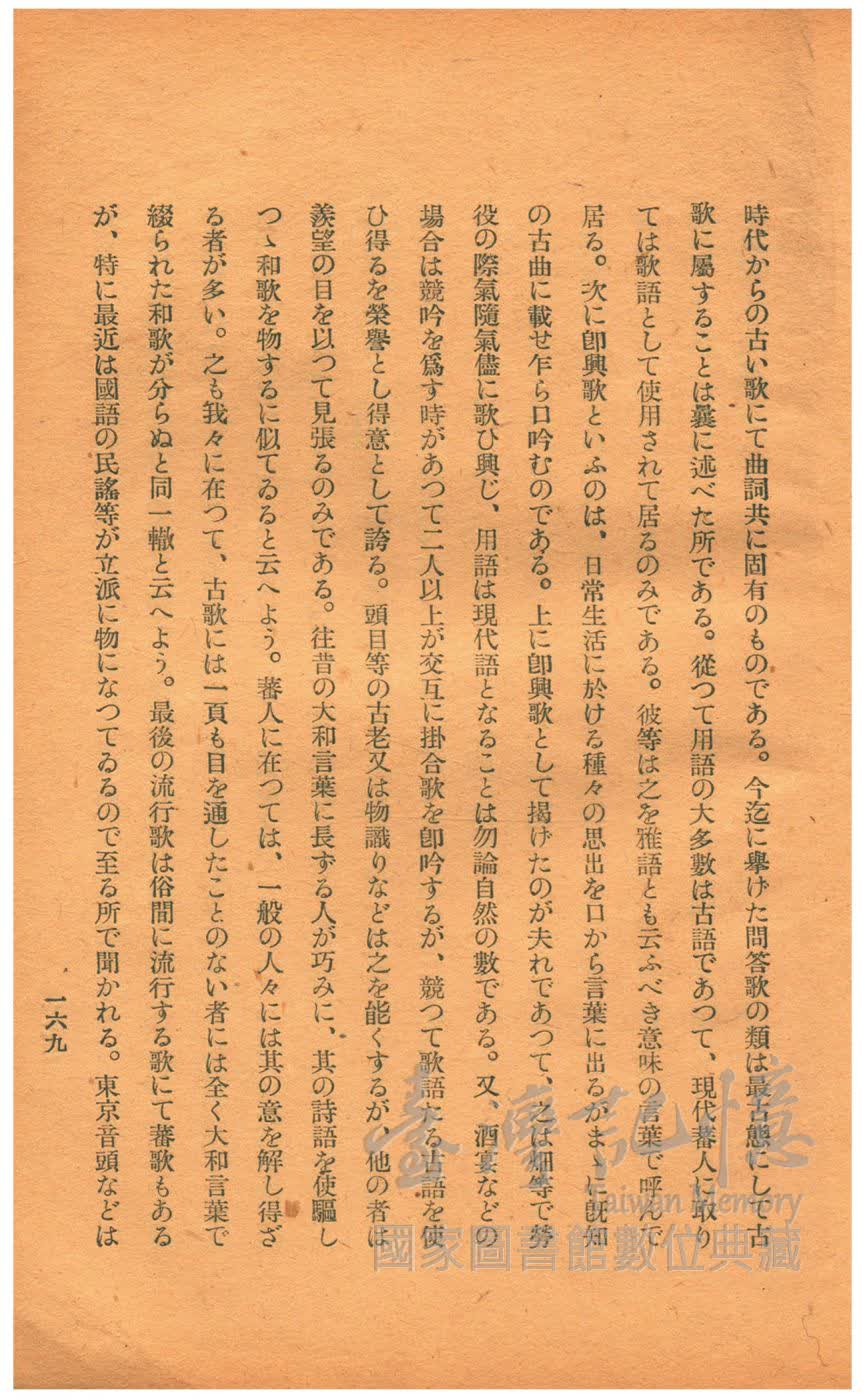 時代からの古い歌にて曲詞共に固有のものである。今迄に擧げた問答歌の類は最古態にして古
歌に屬することは曩に述べた所である。從つて用語の大多數は古語であつて、現代蕃人に取り
ては歌語として使用されて居るのみである。彼等は之を雅語とも云ふべき意味の言葉で呼んで
居る。次に卽興歌といふのは、日常生活に於ける種々の思出を口から言葉に出るがまゝに既知
の古曲に載せ乍ら口吟むのである。上に卽興歌として揭げたのが夫れであつて、之は畑等で勞
役の際氣隨氣儘に歌ひ興じ、用語は現代語となることは勿論自然の數である。又、酒宴などの
場合は競吟を爲す時があつて二人以上が交互に掛合歌を卽吟するが、競つて歌語たる古語を使
ひ得るを榮譽とし得意として誇る。頭目等の古老又は物識りなどは之を能くするが、他の者は
羨望の目を以つて見張るのみである。往昔の大和言葉に長ずる人が巧みに、其の詩語を使驅し
つゝ和歌を物するに似てゐると云へよう。蕃人に在つては、一般の人々には其の意を解し得ざ
る者が多い。之も我々に在つて、古歌には一頁も目を通したことのない者には全く大和言葉で
綴られた和歌が分らぬと同一轍と云へよう。最後の流行歌は俗間に流行する歌にて蕃歌もある
が、特に最近は國語の民謠等が立派に物になつてゐるので至る所で聞かれる。東京音頭などは
一六九
臺灣記憶
Taiwan Memory
國家圖書館數位典藏